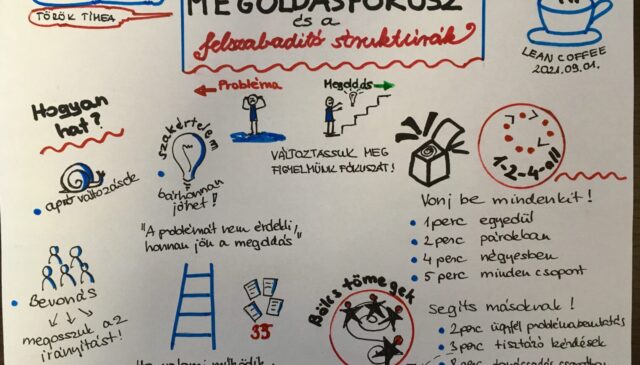 TÖRÖK TÍMEA
MEGOLDÁSFÓKUSZ
és a
felszabadító struktúrák
LEAN COFFEE
2021.09.01.
Probléma
Megoldás
VÁLTOZTASSUK MEG
FIGYELMÜNK FÓKUSZÁT!
Hogyan
hat?
apró változások
szakértelem
bárhonnan
jöhet!
"A problémát nem érdekli,
honnan jön a megoldás"
Bevonás
megosszuk az
irányítást!
35
Bölcs tömegek
1-2-4-all
Vonj be mindenkit!
1 perc egyedül
2 perc párokban
4 perc négyesben
5 perc minden csoport
Segíts másoknak!
2 perc ügyfél problémabemutatás
3 perc tisztázó kérdések
Ha valami működik